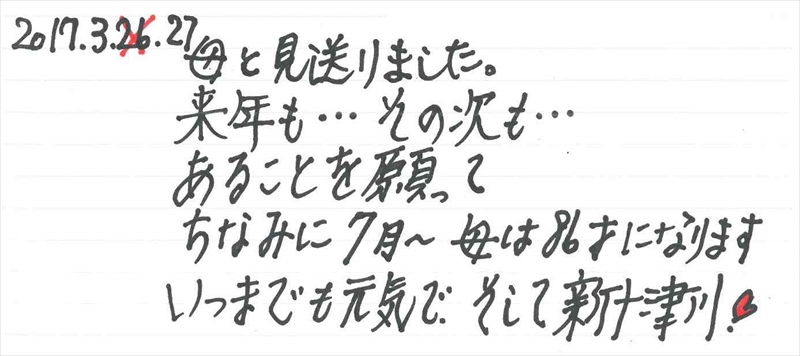 2017.3.26.27
母と見送りました。
来年も…その次も…
あることを願って
ちなみに7月〜母は86才になります
いつまでも元気で、そして新十津川!